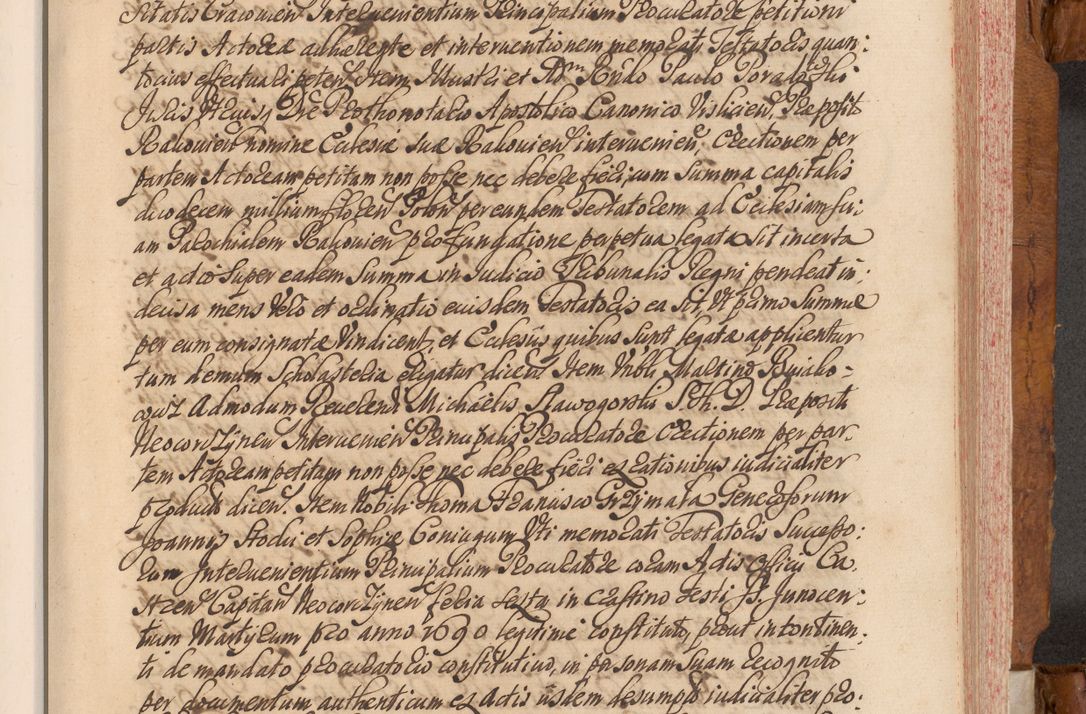 sitatis Cracovien Intervenientium Principalium Procuratore petitioni
partis Actorea adhaerente et interventionem memorati Testatoris quan:
tocius effectuari peten. Item Illustri et Adm Rndo Paulo Poradowski
Iuris Utriusq Dre Prothonotario Apostolico Canonico Vislicien, Praeposit
Rakovien nomine Eclesiae suae Rakovien intervenien, Erectionem per
partem Actoream petitam non posse nec debere fieri, cum Summa capitalis
duodecem millium floren Polon per eundem Testatorem ad Ecclesiam su:
am Parochialem Rakovien pro fundatione perpetua legata sit incerta
et adeo super eadem Summa in Iudicio Tribunalis Regni pendeat in:
decisa mens Vero et ordinatio eiusdem Testatoris ea sit, Ut primo Summae
per eum consignatae Vindicent, et Eclesiis quibus sunt legatae applicentur
tum demum Scholasteria erigatur dicen. Item Nbli Martino Buiako-
owi Admodum Reverend Michaelis Stawogorski S.Th.D. Praepositi
Neocorczynen Intervenien Principalis Procuratore Erectionem per par:
tem Actoream petitam non posse nec debere fieri ex rationibus iudicialiter
productis dicen. Item Nobili Thoma Grzymała Generosorum
Joannis et Sophiae Coniugum Uti memorati Testatoris Successo:
rum Intervenientium Principalium Procuratore coram Actis Officii Ca:
stren Capitan Neocorczynen feria sexta in crastino festi SS. Innocen:
tium Martyrum pro anno 1690 legitime constituto, prout in continen:
ti de mandato procuratorio constitutivo, in personam suam recognito
per documentum authenticum ex Actis iisdem desumpt iudicialiter pro: